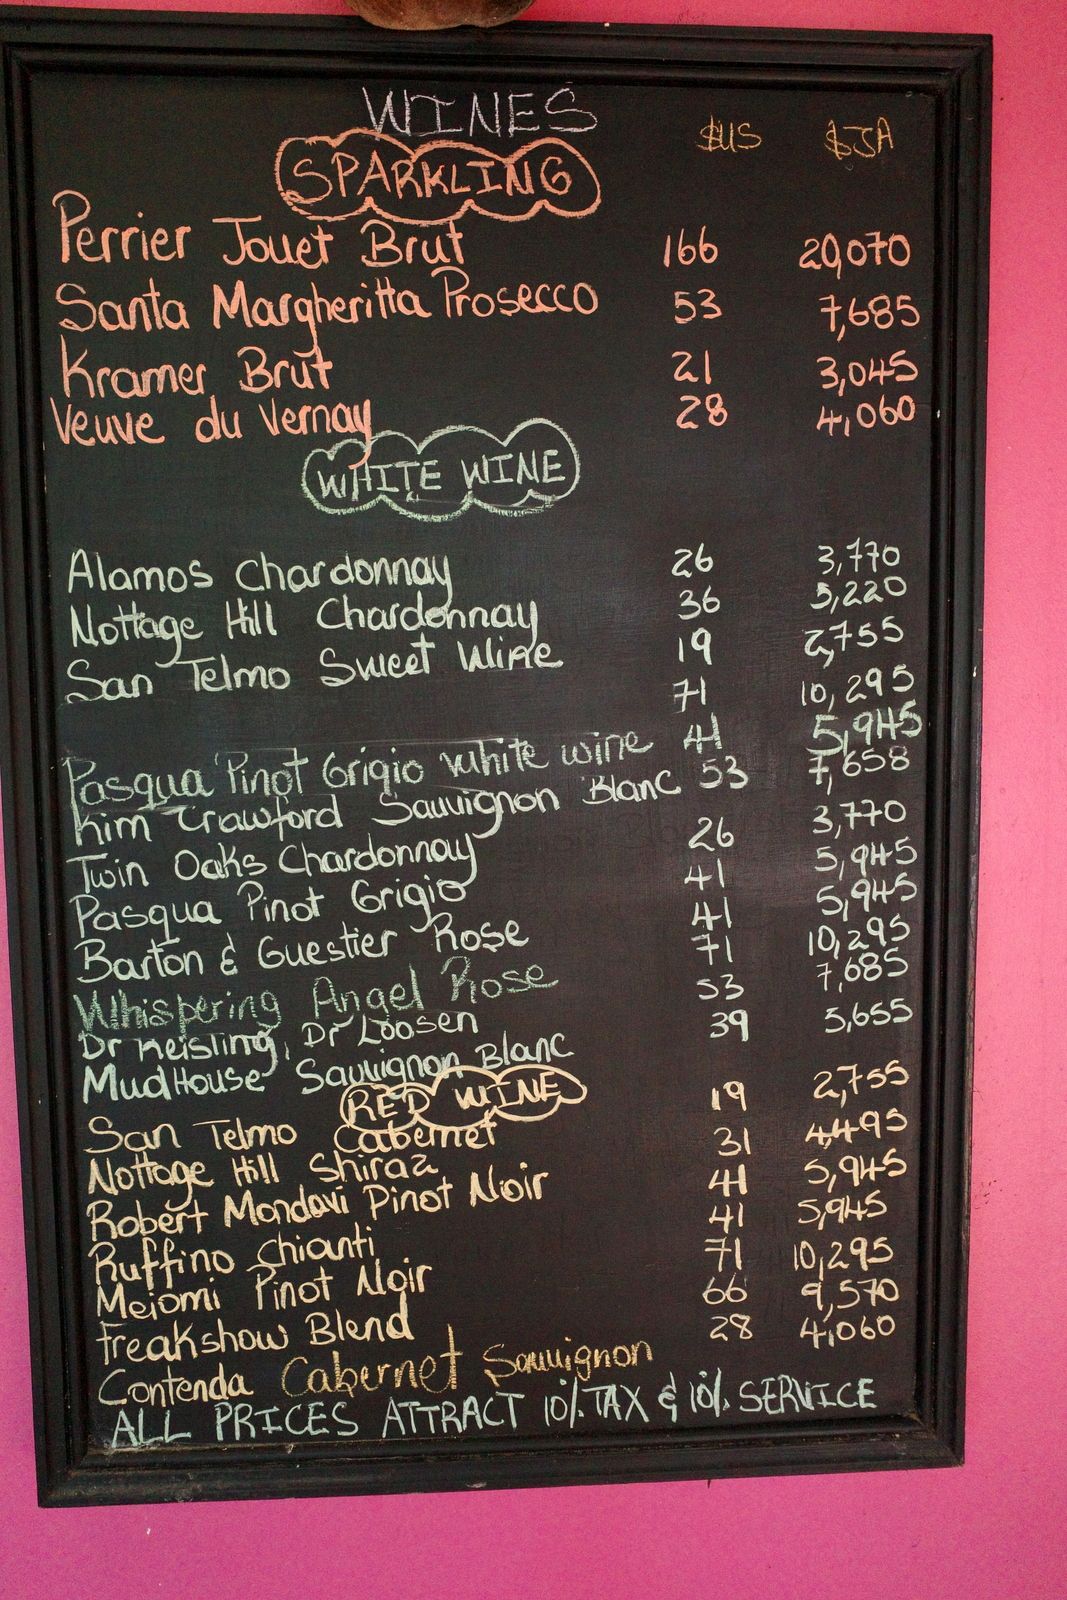 WINES $US $JA
SPARKLING
Perrier Jouet Brut 166 20,070
Santa Margheritta Prosecco 53 7,685
Kramer Brut 21 3,045
Veuve du Vernay 28 4,060
WHITE WINE
Alamos Chardonnay 26 3,770
Nottage Hill Chardonnay 36 5,220
San Telmo Sweet Wine 19 2,755
71 10,295
Pasqua Pinot Grigio White wine 41 5,945
Kim Crawford Sauvignon Blanc 53 7,658
Twin Oaks Chardonnay 26 3,770
Pasqua Pinot Grigio 41 5,945
Barton & Guestier Rose 41 5,945
Whispering Angel Rose 71 10,295
Dr Reisling, Dr Loosen 53 7,685
MudHouse Sauvignon Blanc 39 5,655
RED WINE
San Telmo Cabernet 19 2,755
Nottage Hill Shiraz 31 4,495
Robert Mondavi Pinot Noir 41 5,945
Ruffino Chianti 41 5,945
Meiomi Pinot Noir 71 10,295
Freakshow Blend 66 9,570
Contenda Cabernet Sauvignon 28 4,060
ALL PRICES ATTRACT 10% TAX & 10% SERVICE